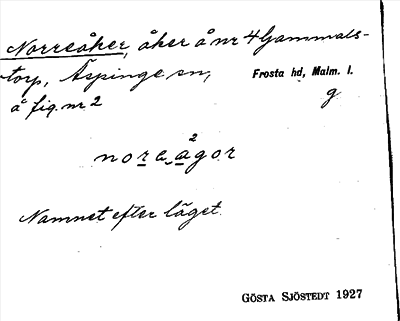 Norreåker, åker å nr 4 Gammals-
torp, Äspinge sn, Frosta hd, Malm. l.
å fig. nr 2 g
2
nore agor
Namnet efter läget.
GÖSTA SJÖSTEDT 1927